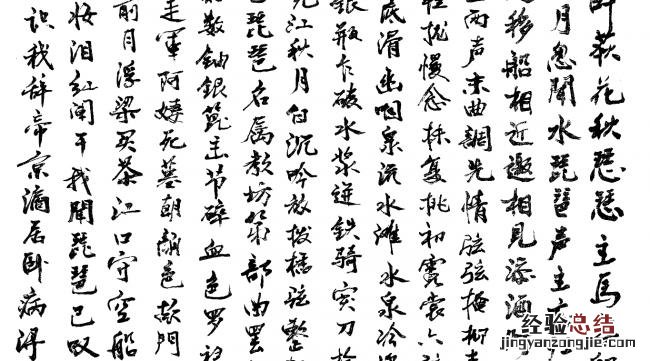 荻花秋瑟瑟主马
月忽聞水琵琶声主
移船相近邀相见添酒
两声未曲調先情弦弦掩抑
轻拢慢念抹复挑初霓裳六
底滑幽咽泉流水滩水泉冷
銀瓶乍破水浆迸鉄骑突刀枪
见江秋月白沉吟放拨插弦整
琵琶名属教坊第部曲罢
数钿银篦击节碎血色罗
走軍阿姨死暮朝顏色故門
前月浮梁买茶江口守空船
妆泪红闌干我聞琵琶已叹
识我辞帝京谪居卧病浔
经验总结
jingyanzongjie.com